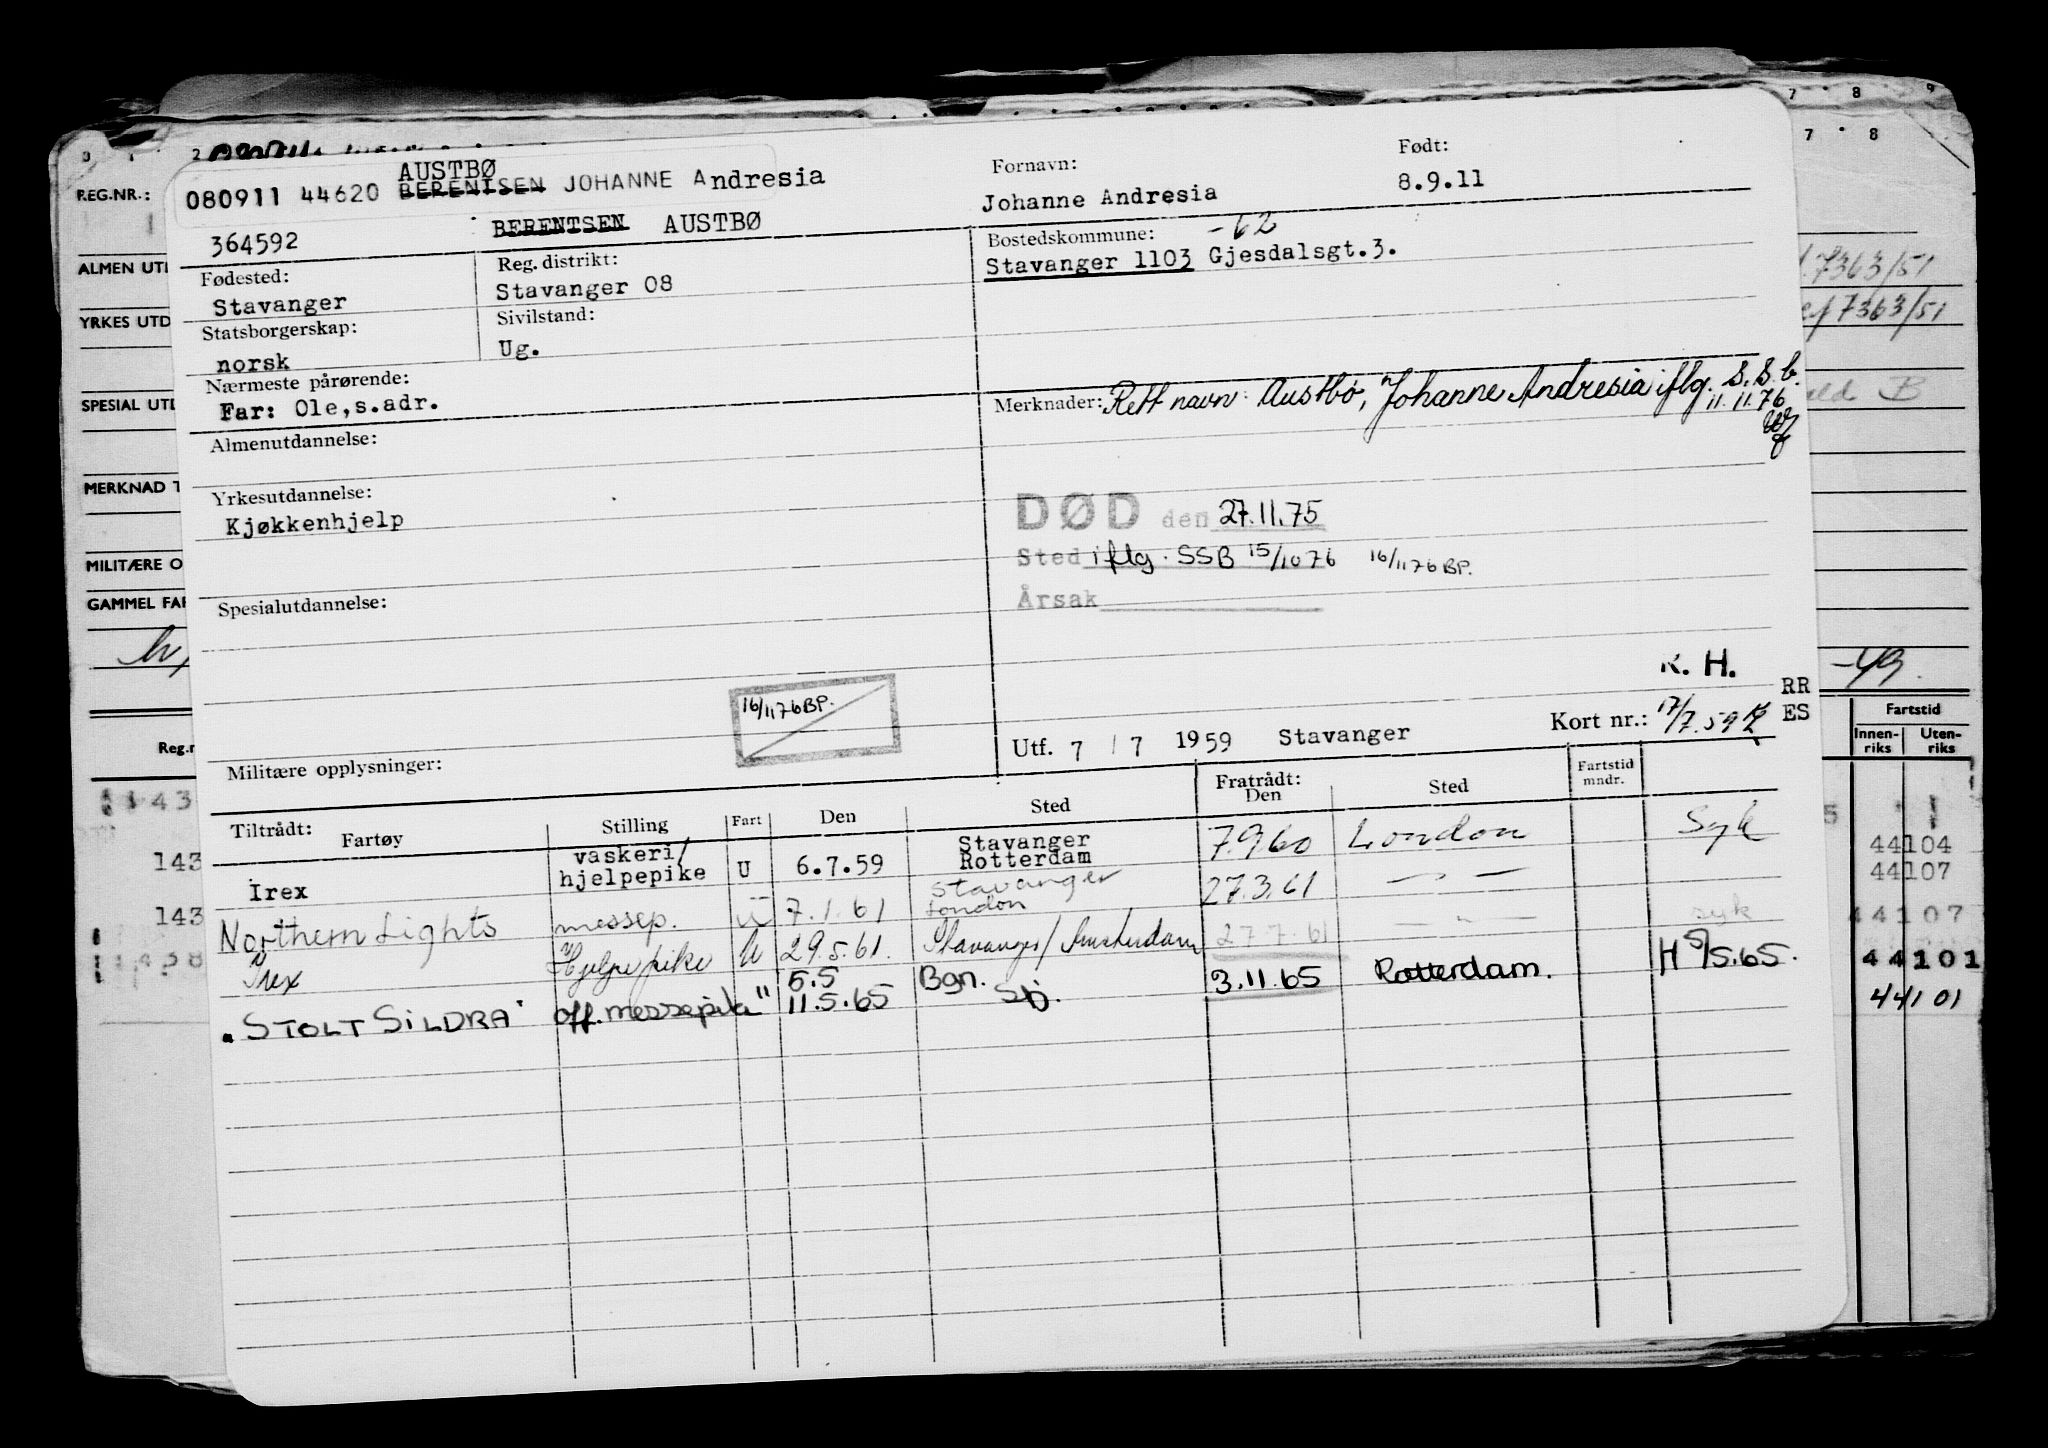 7 8 9
0 1 2 7 8
REG.NR.:
AUSTBØ
080911 44620 BERENTSEN JOHANNE Andresia
364592 BERENTSEN AUSTBØ
Fornavn:
Johanne Andresia
Født:
8.9.11
Fødested:
Stavanger
Reg. distrikt:
Stavanger 08
Bostedskommune: -62
Stavanger 1103 Gjesdalsgt.3.
Statsborgerskap:
norsk
Sivilstand:
Ug.
Nærmeste pårørende:
Far: Ole,s.adr.
Merknader: Rett navn: Austbø, Johanne Andresia iflg. S.S.b.
11.11.76
Almenutdannelse:
Yrkesutdannelse:
Kjøkkenhjelp
DØD den 27.11.75
Sted iflg. SSB 15/10 76 16/11 76 BP.
Årsak
Spesialutdannelse:
R. H.
16/11 76 BP.
Utf. 7 / 7 1959 Stavanger
Kort nr.: 17/7.59
RR
ES
Militære opplysninger:
Tiltrådt: Fartøy Stilling Fart Den Sted Fratrådt: Den Sted Fartstid mndr.
Irex vaskeri/ hjelpepike U 6.7.59 Stavanger Rotterdam 7.9.60 London Syk
Northern Lights messep. U 7.1.61 Stavanger London 27.3.61 — " —
Irex Hjelpepike U 29.5.61. Stavanger/Amsterdam 27.7.61 — " — syk
"STOLT SILDRA" off.messepike " 5.5 11.5.65 Bgn. Stj. 3.11.65 Rotterdam. H 5/5.65.
ALMEN UTD
YRKES UTD
SPESIAL UTD
MERKNAD T
MILITÆRE O
GAMMEL FAR
Reg.n
143
143
143
7363/51
7363/51
B
-49.
Fartstid
Innen-riks Uten-riks
44104
44107
44107
44101
44101